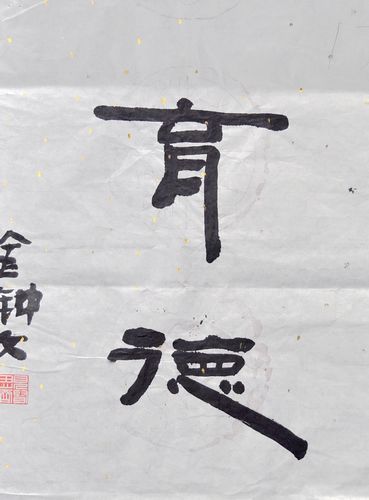 育
德
金钟文